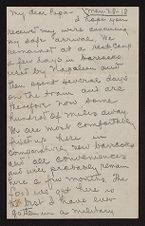 My dear Papa - Mar 28-18
I hope you
received my wire announcing
my safe arrival. We
remained at a rest camp
a few days in barracks
used by Napoleon and
then spent several days
on the train and are
therefore now some
hundred of miles away.
We are most comfortably
fixed up here in
comparatively new barracks
and all conveniences
and will probably remain
here a few months. The
food we get here is
best I have ever
gotten in a military